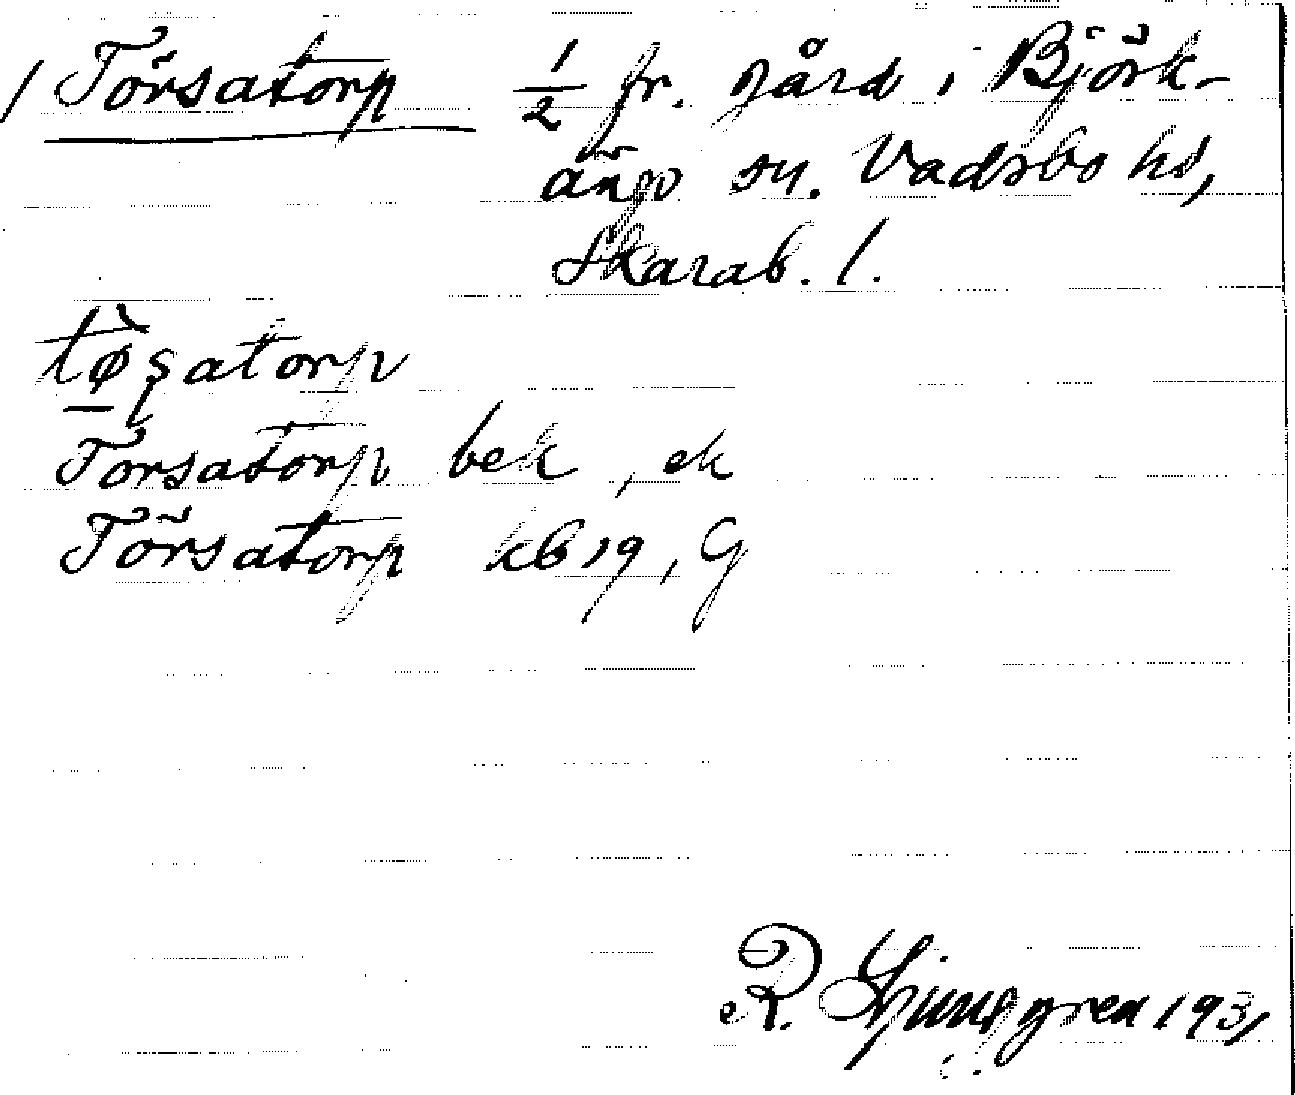 / Törsatorp 1/2 fr. gård i Björk-
ängs sn. Vadsbo hd,
Skarab. l.
tø̀ṣatorp
Torsatorp bek, ek
Törsatorp kb19, G
R. Ljunggren 1931